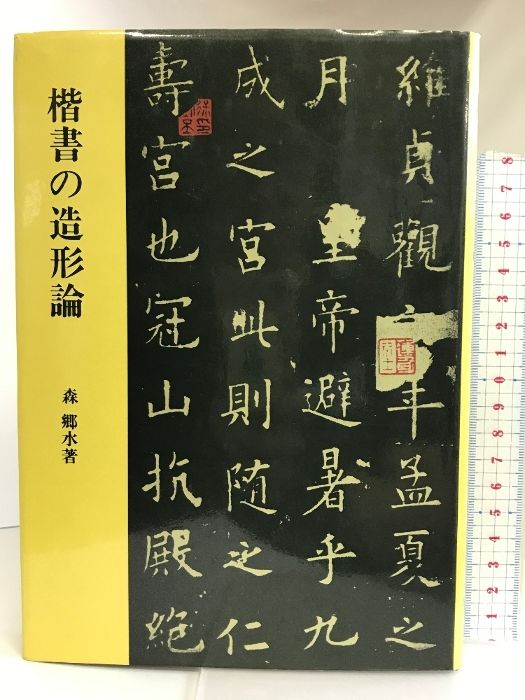 楷書の造形論
森 郷水著
維貞觀六年孟夏之
月 皇帝避暑乎九
成之宮此則随之仁
壽宮也冠山抗殿絶
8 7 6 5 4 3 2 1 1 2 3 4 5 6 7